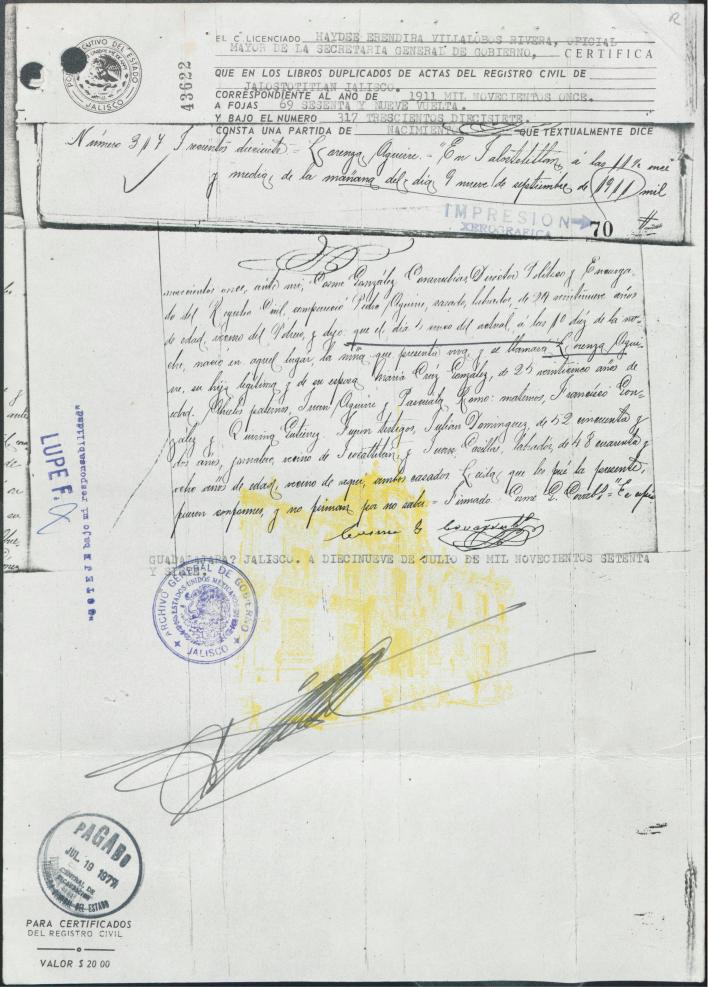 R
EL C LICENCIADO HAYDEE ERENDIRA VILLALOBOS RIVERA, OFICIAL
MAYOR DE LA SECRETARIA GENERAL DE GOBIERNO, CERTIFICA
QUE EN LOS LIBROS DUPLICADOS DE ACTAS DEL REGISTRO CIVIL DE
JALOSTOTITLAN JALISCO.
CORRESPONDIENTE AL AÑO DE 1911 MIL NOVECIENTOS ONCE.
A FOJAS 69 SESENTA Y NUEVE VUELTA.
Y BAJO EL NUMERO 317 TRESCIENTOS DIECISIETE.
CONSTA UNA PARTIDA DE NACIMIENTO QUE TEXTUALMENTE DICE
PODER EJECUTIVO DEL ESTADO
JALISCO
43622
Número 317 Trecientos diecisiete = Lorenza Aguirre. - "En Jalostotitlán, á las 11½ once
y media, de la mañana del dia 9 nueve de septiembre de 1911 mil
IMPRESION
XEROGRAFICA
70
novecientos once, ante mi, Cosme González Covarrubias, Director Politico y Encarga-
do del Registro Civil, compareció Pedro Aguirre, casado, labrador, de 29 veintinueve años
de edad, vecino del Potrero, y dijo: que el dia 1º uno del actual, á las 10 diez de la no-
che, nació en aquel lugar, la niña que presenta viva, y se llamará Lorenza Agui-
rre, su hija legítima y de su esposa María Cruz González, de 25 veinticinco años de
edad. Abuelos paternos, Juan Aguirre y Pascuala Romo: maternos, Francisco Gon-
zález y Quirina Gutiérrez. Fueron testigos, Julián Dominguez, de 52 cincuenta y
dos años, jornalero, vecino de Teocaltitán, y Juan Casillas, labrador, de 48 cuarenta y
ocho años de edad, vecino de aquí, ambos casados. Leida que les fué la presente,
fueron conformes, y no firman por no saber = Firmado. Cosme G. Covarr. = "Es copia
Cosme G. Covarrubias
GUADALAJARA? JALISCO. A DIECINUEVE DE JULIO DE MIL NOVECIENTOS SETENTA
Y SIETE.
"COTEJE bajo mi responsabilidad"
LUPE F.
ARCHIVO GENERAL DE GOBIERNO
ESTADOS UNIDOS MEXICANOS
JALISCO
PAGADO
JUL. 19 1977
CENTRAL DE
RECAUDACION
DEL ESTADO
PARA CERTIFICADOS
DEL REGISTRO CIVIL
VALOR $ 20 00